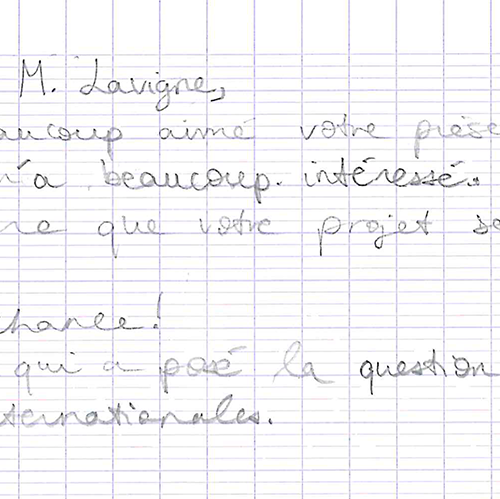 M. Lavigne,
aucoup aimé votre prése
m'a beaucoup. intéressé.
ne que votre projet se
chance!
qui a posé la question
ternationales.